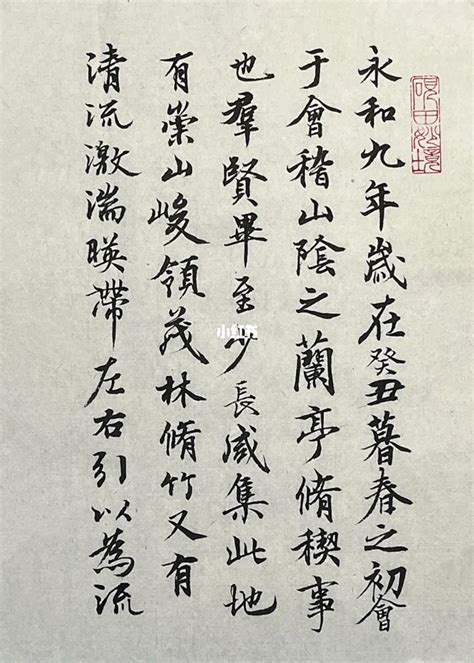 永和九年歲在癸丑暮春之初會
于會稽山陰之蘭亭脩稧事
也羣賢畢至少長咸集此地
有崇山峻領茂林脩竹又有
清流激湍暎帶左右引以為流
硯田妙境
小红书